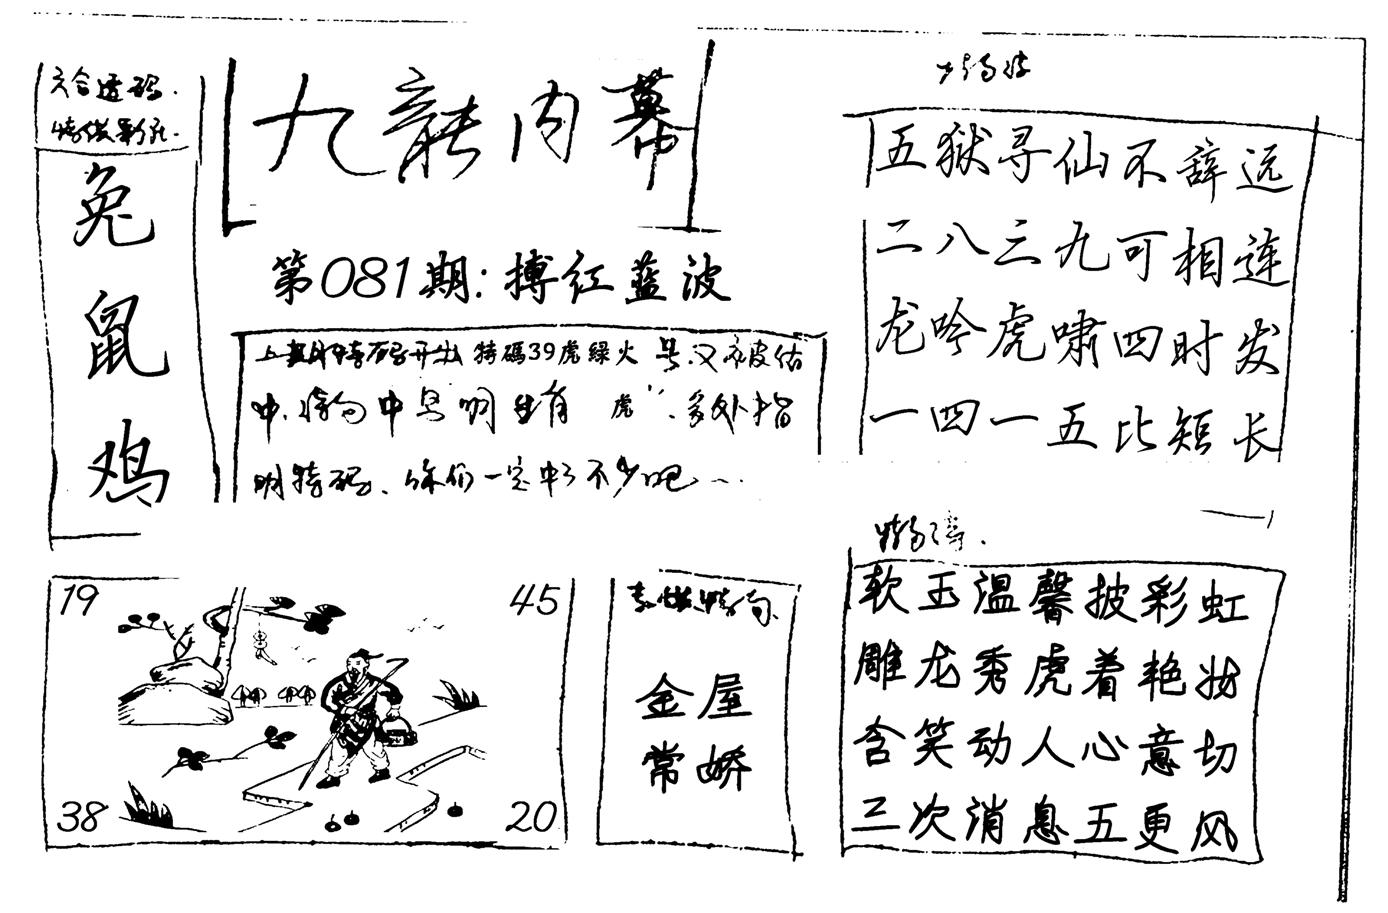 六合透码.
特供彩民.
兔
鼠
鸡
九龍内幕
第081期:搏红蓝波
上期特码开出 特碼39虎绿火 号.又被估
中.特句中写明生肖 虎“.多处指
明特码、你们一定中了不少吧…
五狱寻仙不辞远
二八三九可相连
龙吟虎啸四时发
一四一五比短长
19
45
38
20
金屋
常娇
软玉温馨披彩虹
雕龙秀虎着艳妆
含笑动人心意切
三次消息五更风